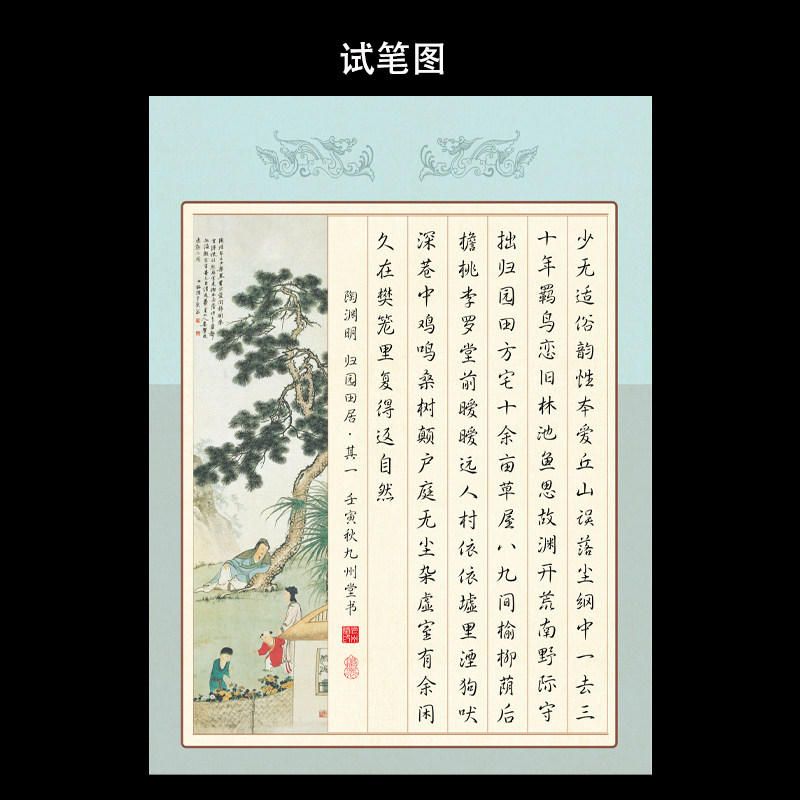 试笔图
少无适俗韵性本爱丘山误落尘纲中一去三
十年羁鸟恋旧林池鱼思故渊开荒南野际守
拙归园田方宅十余亩草屋八九间榆柳荫后
檐桃李罗堂前暧暧远人村依依墟里湮狗吠
深巷中鸡鸣桑树颠户庭无尘杂虚室有余闲
久在樊笼里复得返自然
陶渊明 归园田居·其一 壬寅秋九州堂书